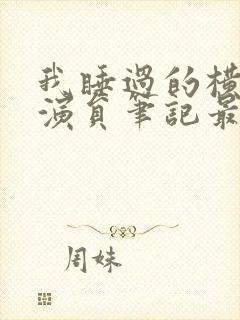 我睡過的橫
演員筆記最
周妹